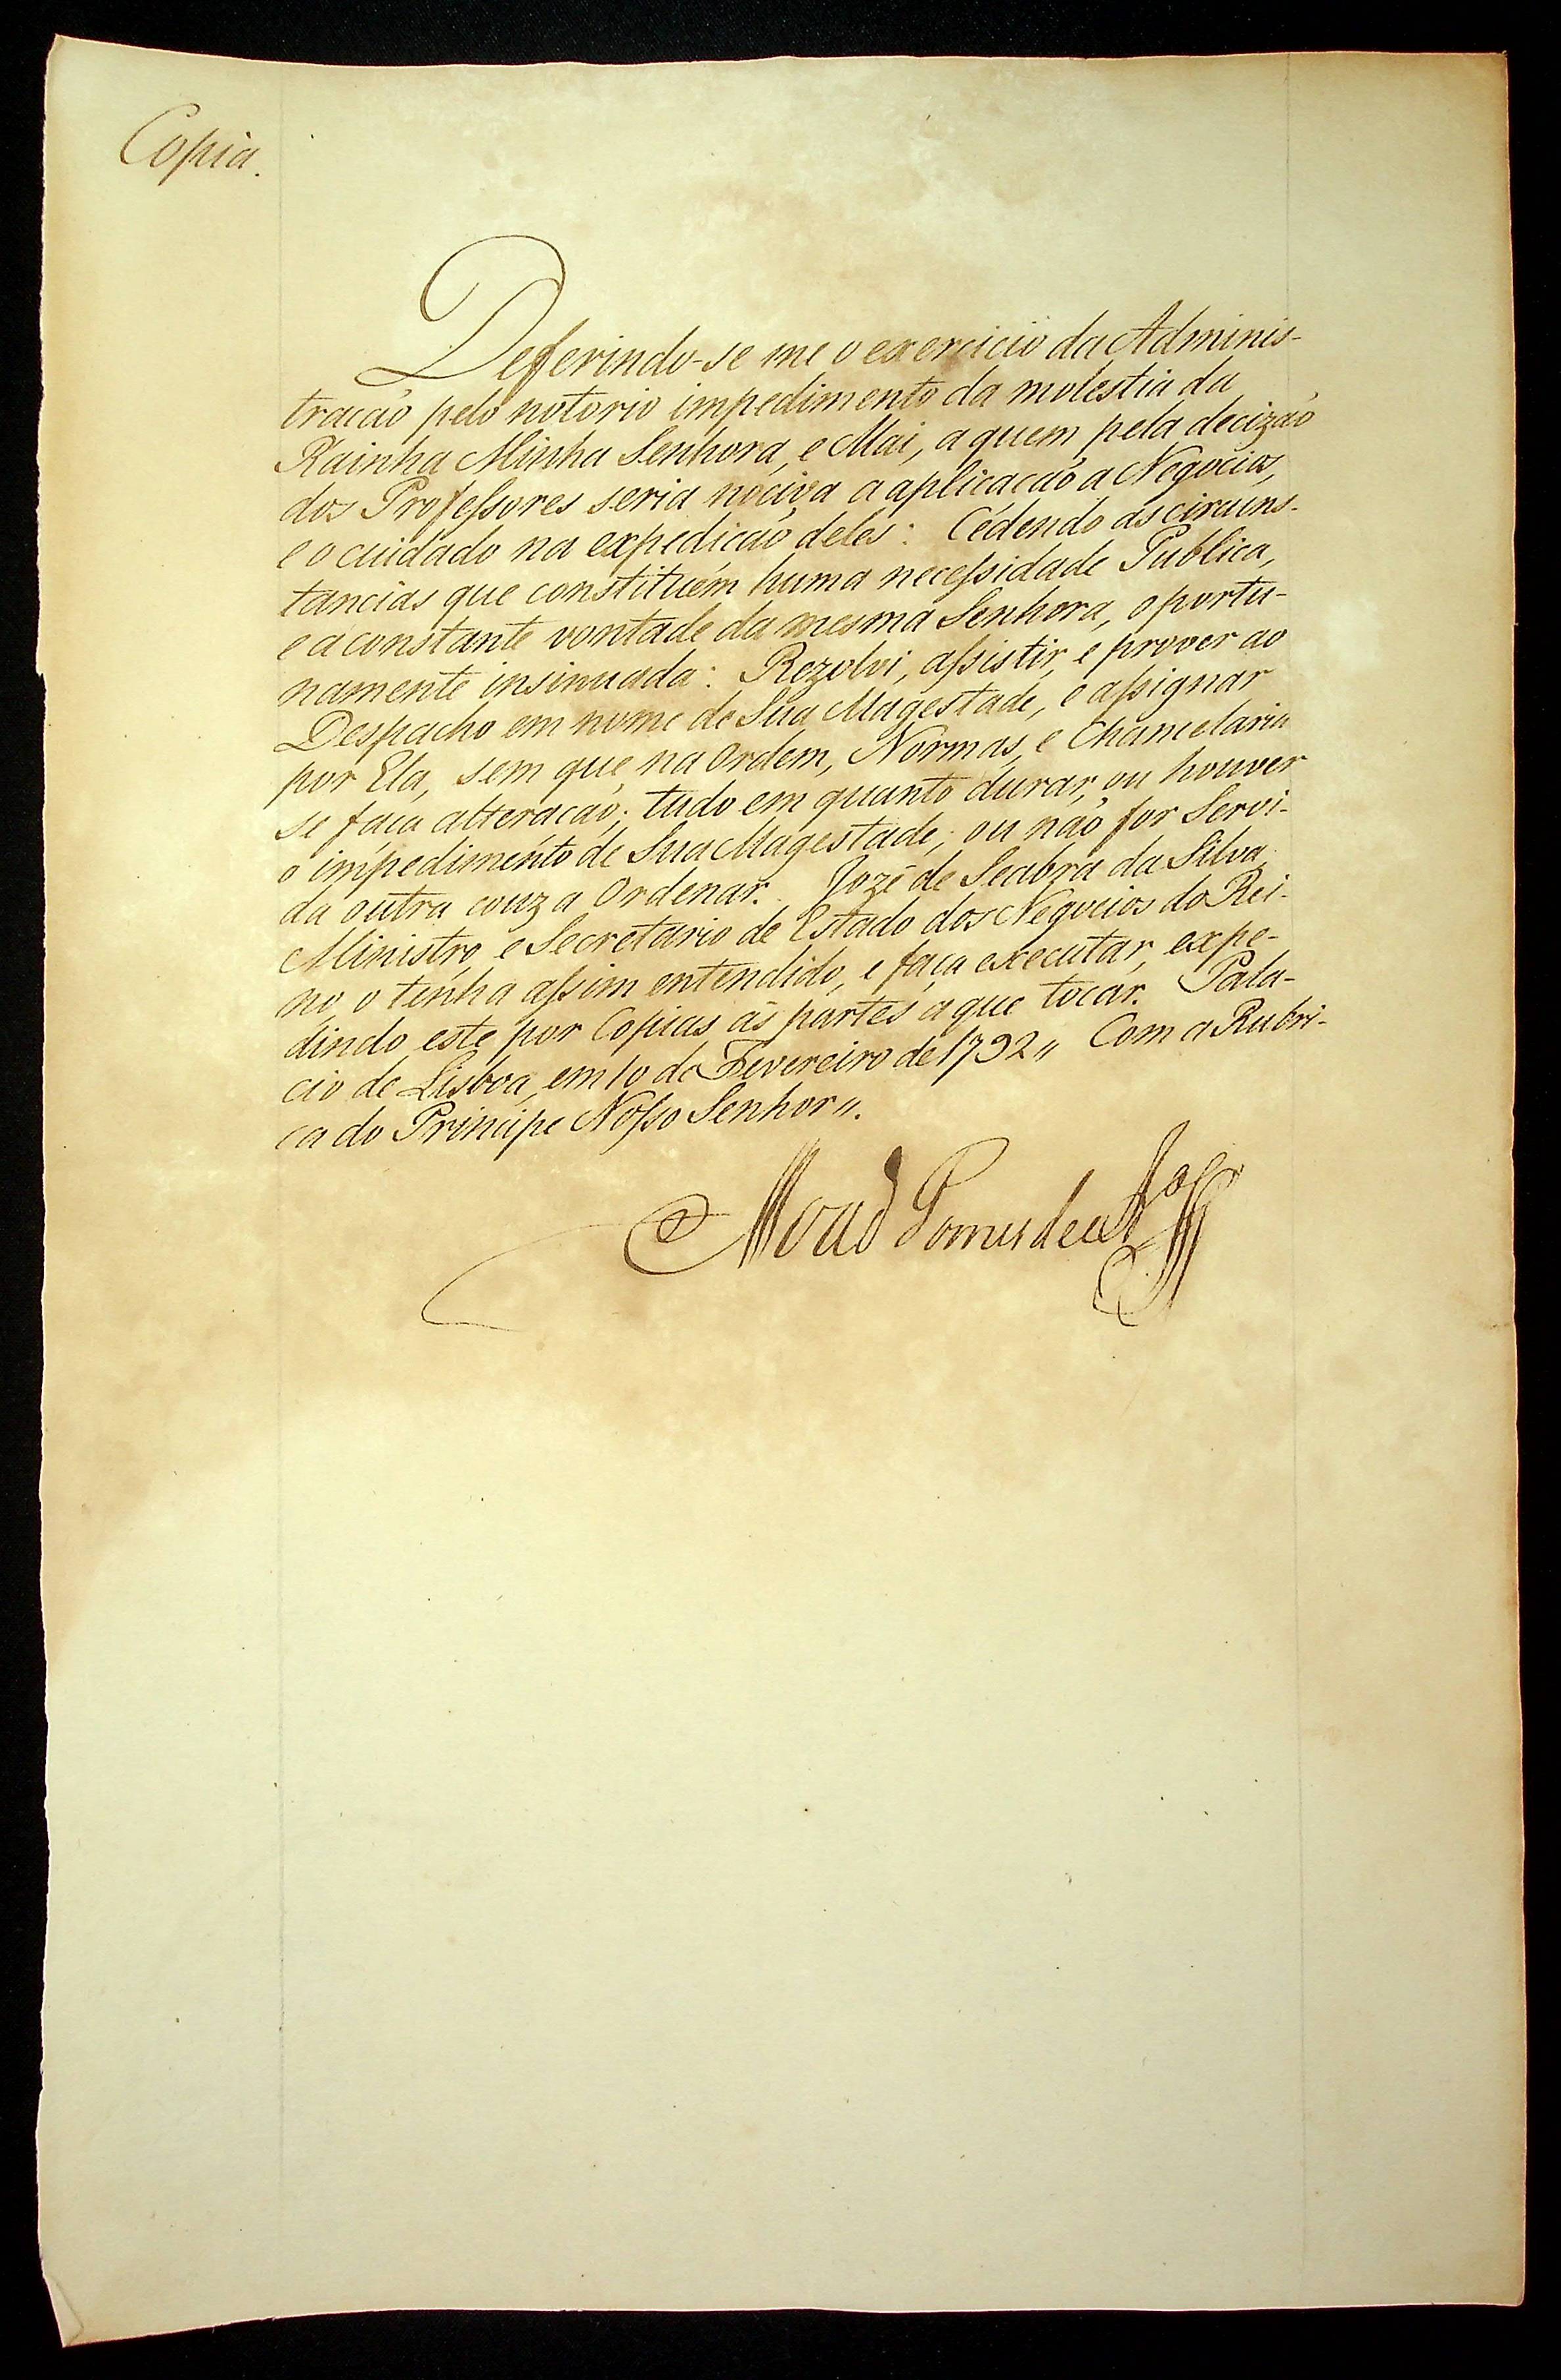 Copia.
Deferindo-se me o exercicio da Adminis-
tracaõ pelo notorio impedimento da molestia da
Rainha Minha Senhora, e Mai, a quem pela decizaõ
dos Profeſsores seria nociva a aplicacaõ a Negocios,
e o cuidado na expedicaõ deles: Cedendo ás circuns-
tancias que constituem huma neceſsidade Publica,
e a constante vontade da mesma Senhora, oportu-
namente insinuada: Rezolvi, aſsistir, e prover ao
Despacho em nome de Sua Magestade, e aſsignar
por Ela, sem que na Ordem, Normas, e Chancelaria
se faça alteracaõ; tudo em quanto durar, ou houver
o impedimento de Sua Magestade; ou naõ for Servi-
da outra couza Ordenar. Jozé de Seabra da Silva,
Ministro, e Secretario de Estado dos Negocios do Rei-
no, o tenha aſsim entendido, e faça executar, expe-
dindo este por Copias ás partes a que tocar. Pala-
cio de Lisboa, em 10 de Fevereiro de 1792 〃 Com a Rubri-
ca do Principe Noſso Senhor 〃.